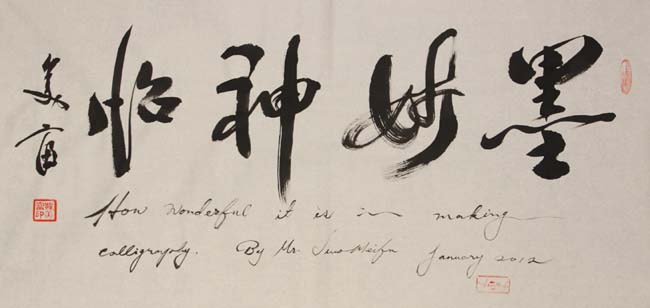 墨妙神怡
美富
How wonderful it is in making
calligraphy. By Mr. January 2012